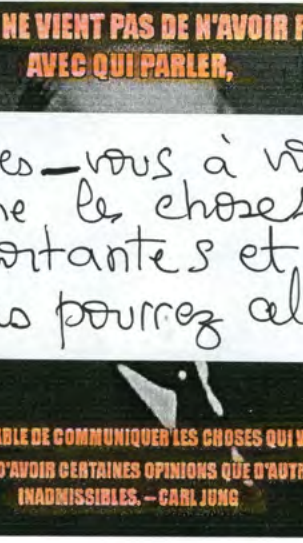 NE VIENT PAS DE N'AVOIR
AVEC QUI PARLER,
-vous à
les choses
et
pourrez
DE COMMUNIQUER LES CHOSES QUI
D'AVOIR CERTAINES OPINIONS QUE
INADMISSIBLES. – CARL JUNG